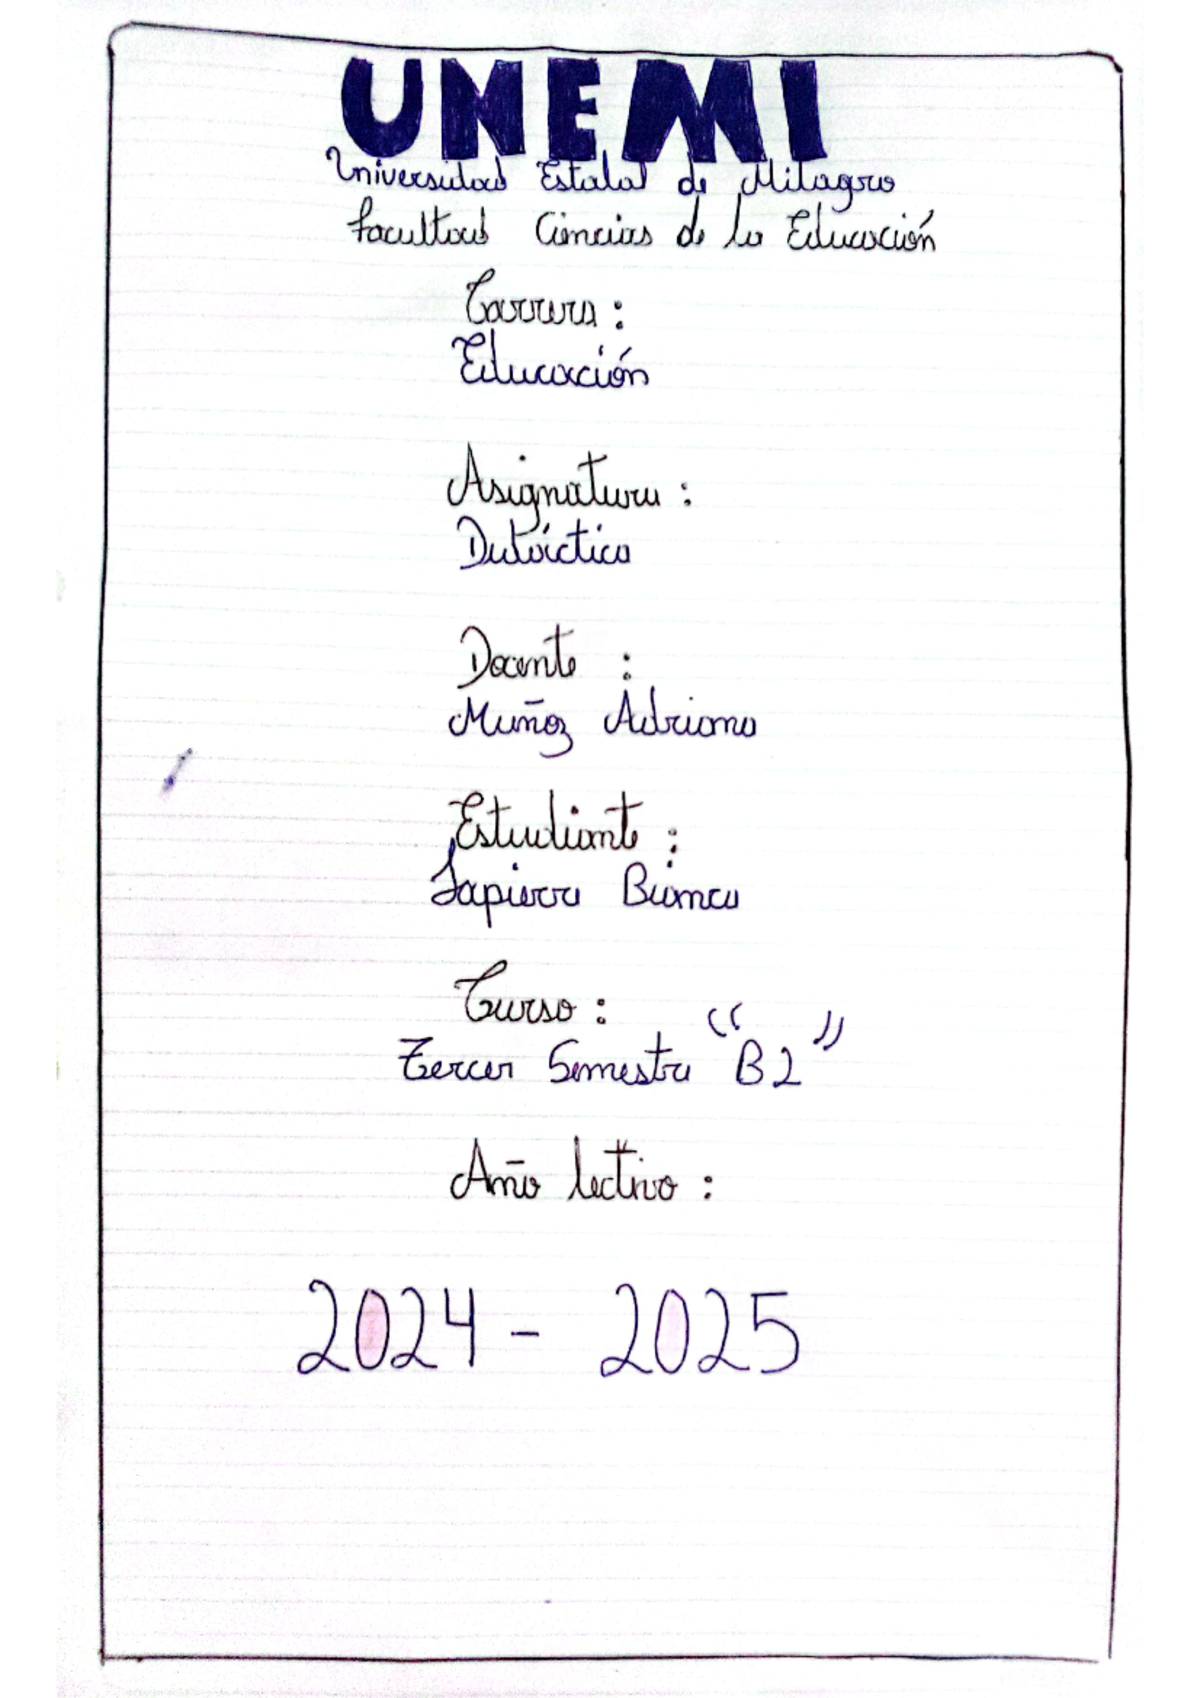 UNEMI
Universidad Estatal de Milagro
Facultad Ciencias de la Educación
Carrera:
Educación
Asignatura:
Didáctica
Docente :
Muñoz Adriana
Estudiante :
Lapierre Bianca
Curso :
Tercer Semestre "B2"
Año lectivo :
2024 - 2025